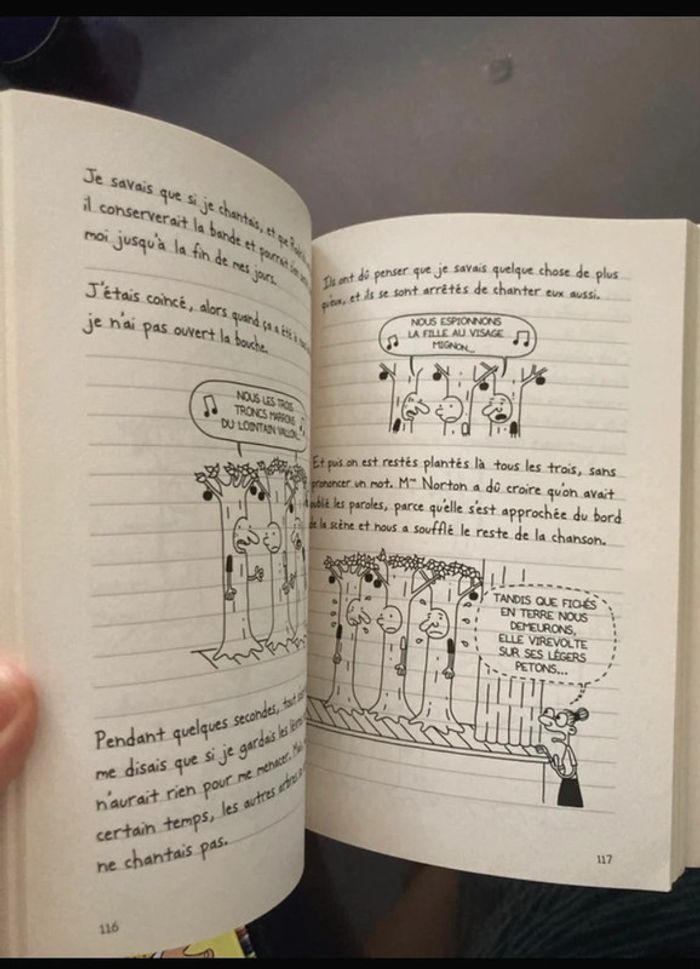 Je savais que si je chantais, et que
il conserverait la bande et pourrait
moi jusqu'à la fin de mes jours.
J'étais coincé, alors quand ça a été à
je n'ai pas ouvert la bouche.
NOUS LES TROIS
TRONCS MARRONS
DU LOINTAIN VALLON...
Pendant quelques secondes, tout
me disais que si je gardais les
n'aurait rien pour me menacer.
certain temps, les autres arbres
ne chantais pas.
116
Ils ont dû penser que je savais quelque chose de plus
qu'eux, et ils se sont arrêtés de chanter eux aussi.
NOUS ESPIONNONS
LA FILLE AU VISAGE
MIGNON...
Et puis on est restés plantés là tous les trois, sans
prononcer un mot. Mme Norton a dû croire qu'on avait
oublié les paroles, parce qu'elle s'est approchée du bord
de la scène et nous a soufflé le reste de la chanson.
TANDIS QUE FICHÉS
EN TERRE NOUS
DEMEURONS,
ELLE VIREVOLTE
SUR SES LÉGERS
PETONS...
117